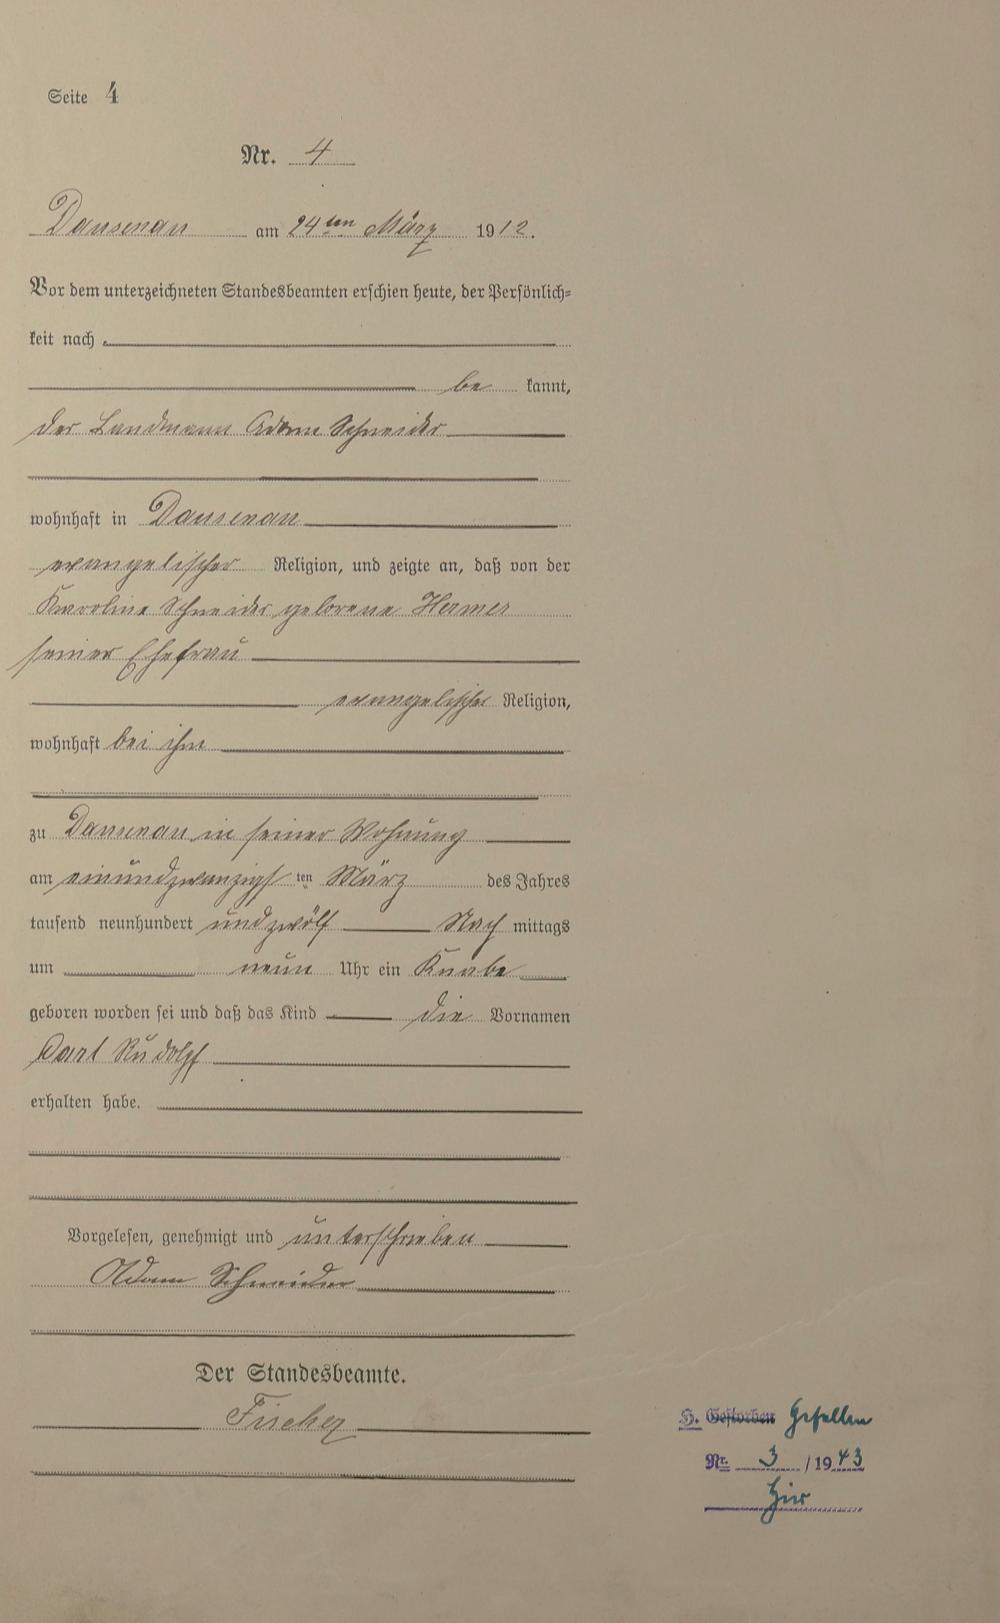 Seite 4
Nr. 4
Dausenau am 24ten März 1912.
Vor dem unterzeichneten Standesbeamten erschien heute, der Persönlich=
keit nach
be kannt,
der Landmann Adam Schneider
wohnhaft in Dausenau
evangelischer Religion, und zeigte an, daß von der
Karoline Schneider geborene
seiner Ehefrau
evangelischer Religion,
wohnhaft bei ihm
zu Dausenau in seiner Wohnung
am einundzwanzigsten März des Jahres
tausend neunhundert undzwölf Nach mittags
um neun Uhr ein Knabe
geboren worden sei und daß das Kind die Vornamen
Carl Rudolf
erhalten habe.
Vorgelesen, genehmigt und unterschrieben
Adam Schneider
Der Standesbeamte.
Fischer
H. Gestorben Gefallen
Nr. 3 /1943
hier